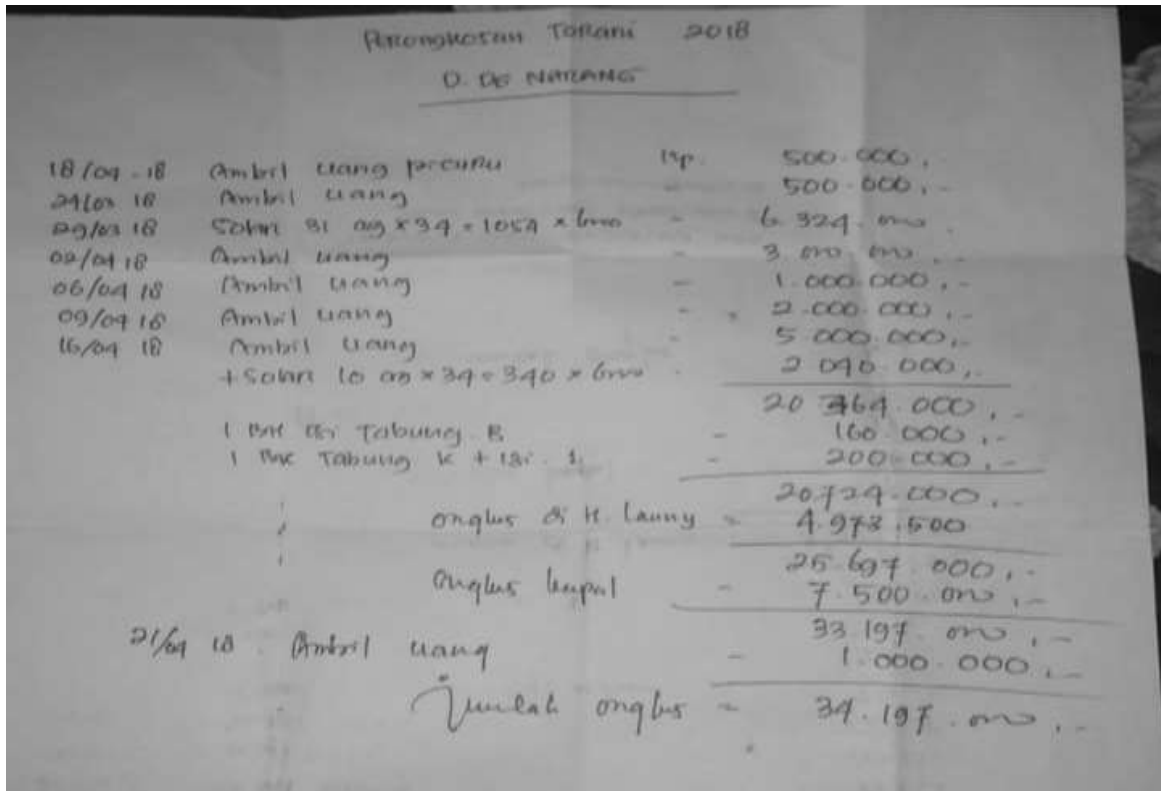 Perongkosan Torani 2018
D. DG NARANG
18/04 - 18 Ambil uang Rp. 500.000,
24/03 18 Ambil uang 500.000,-
29/03 18 Solar 31 × 34 = 1054 × 6000 - 6.324.000
02/04 18 Ambil uang - 3.000.000,-
06/04 18 Ambil uang - 1.000.000,-
09/04 18 Ambil uang - 2.000.000,-
16/04 18 Ambil uang - 5.000.000,-
+ Solar 10 × 34 = 340 × 6000 - 2.040.000,-
20.364.000,-
1 Tabung B - 160.000,-
1 Tabung K + isi. 1. - 200.000,-
20.724.000,-
onglus di H. Launy = 4.973.500
25.697.000,-
Onglus kapal - 7.500.000,-
33.197.000,-
21/04 18. Ambil uang - 1.000.000,-
Jumlah onglus = 34.197.000,-